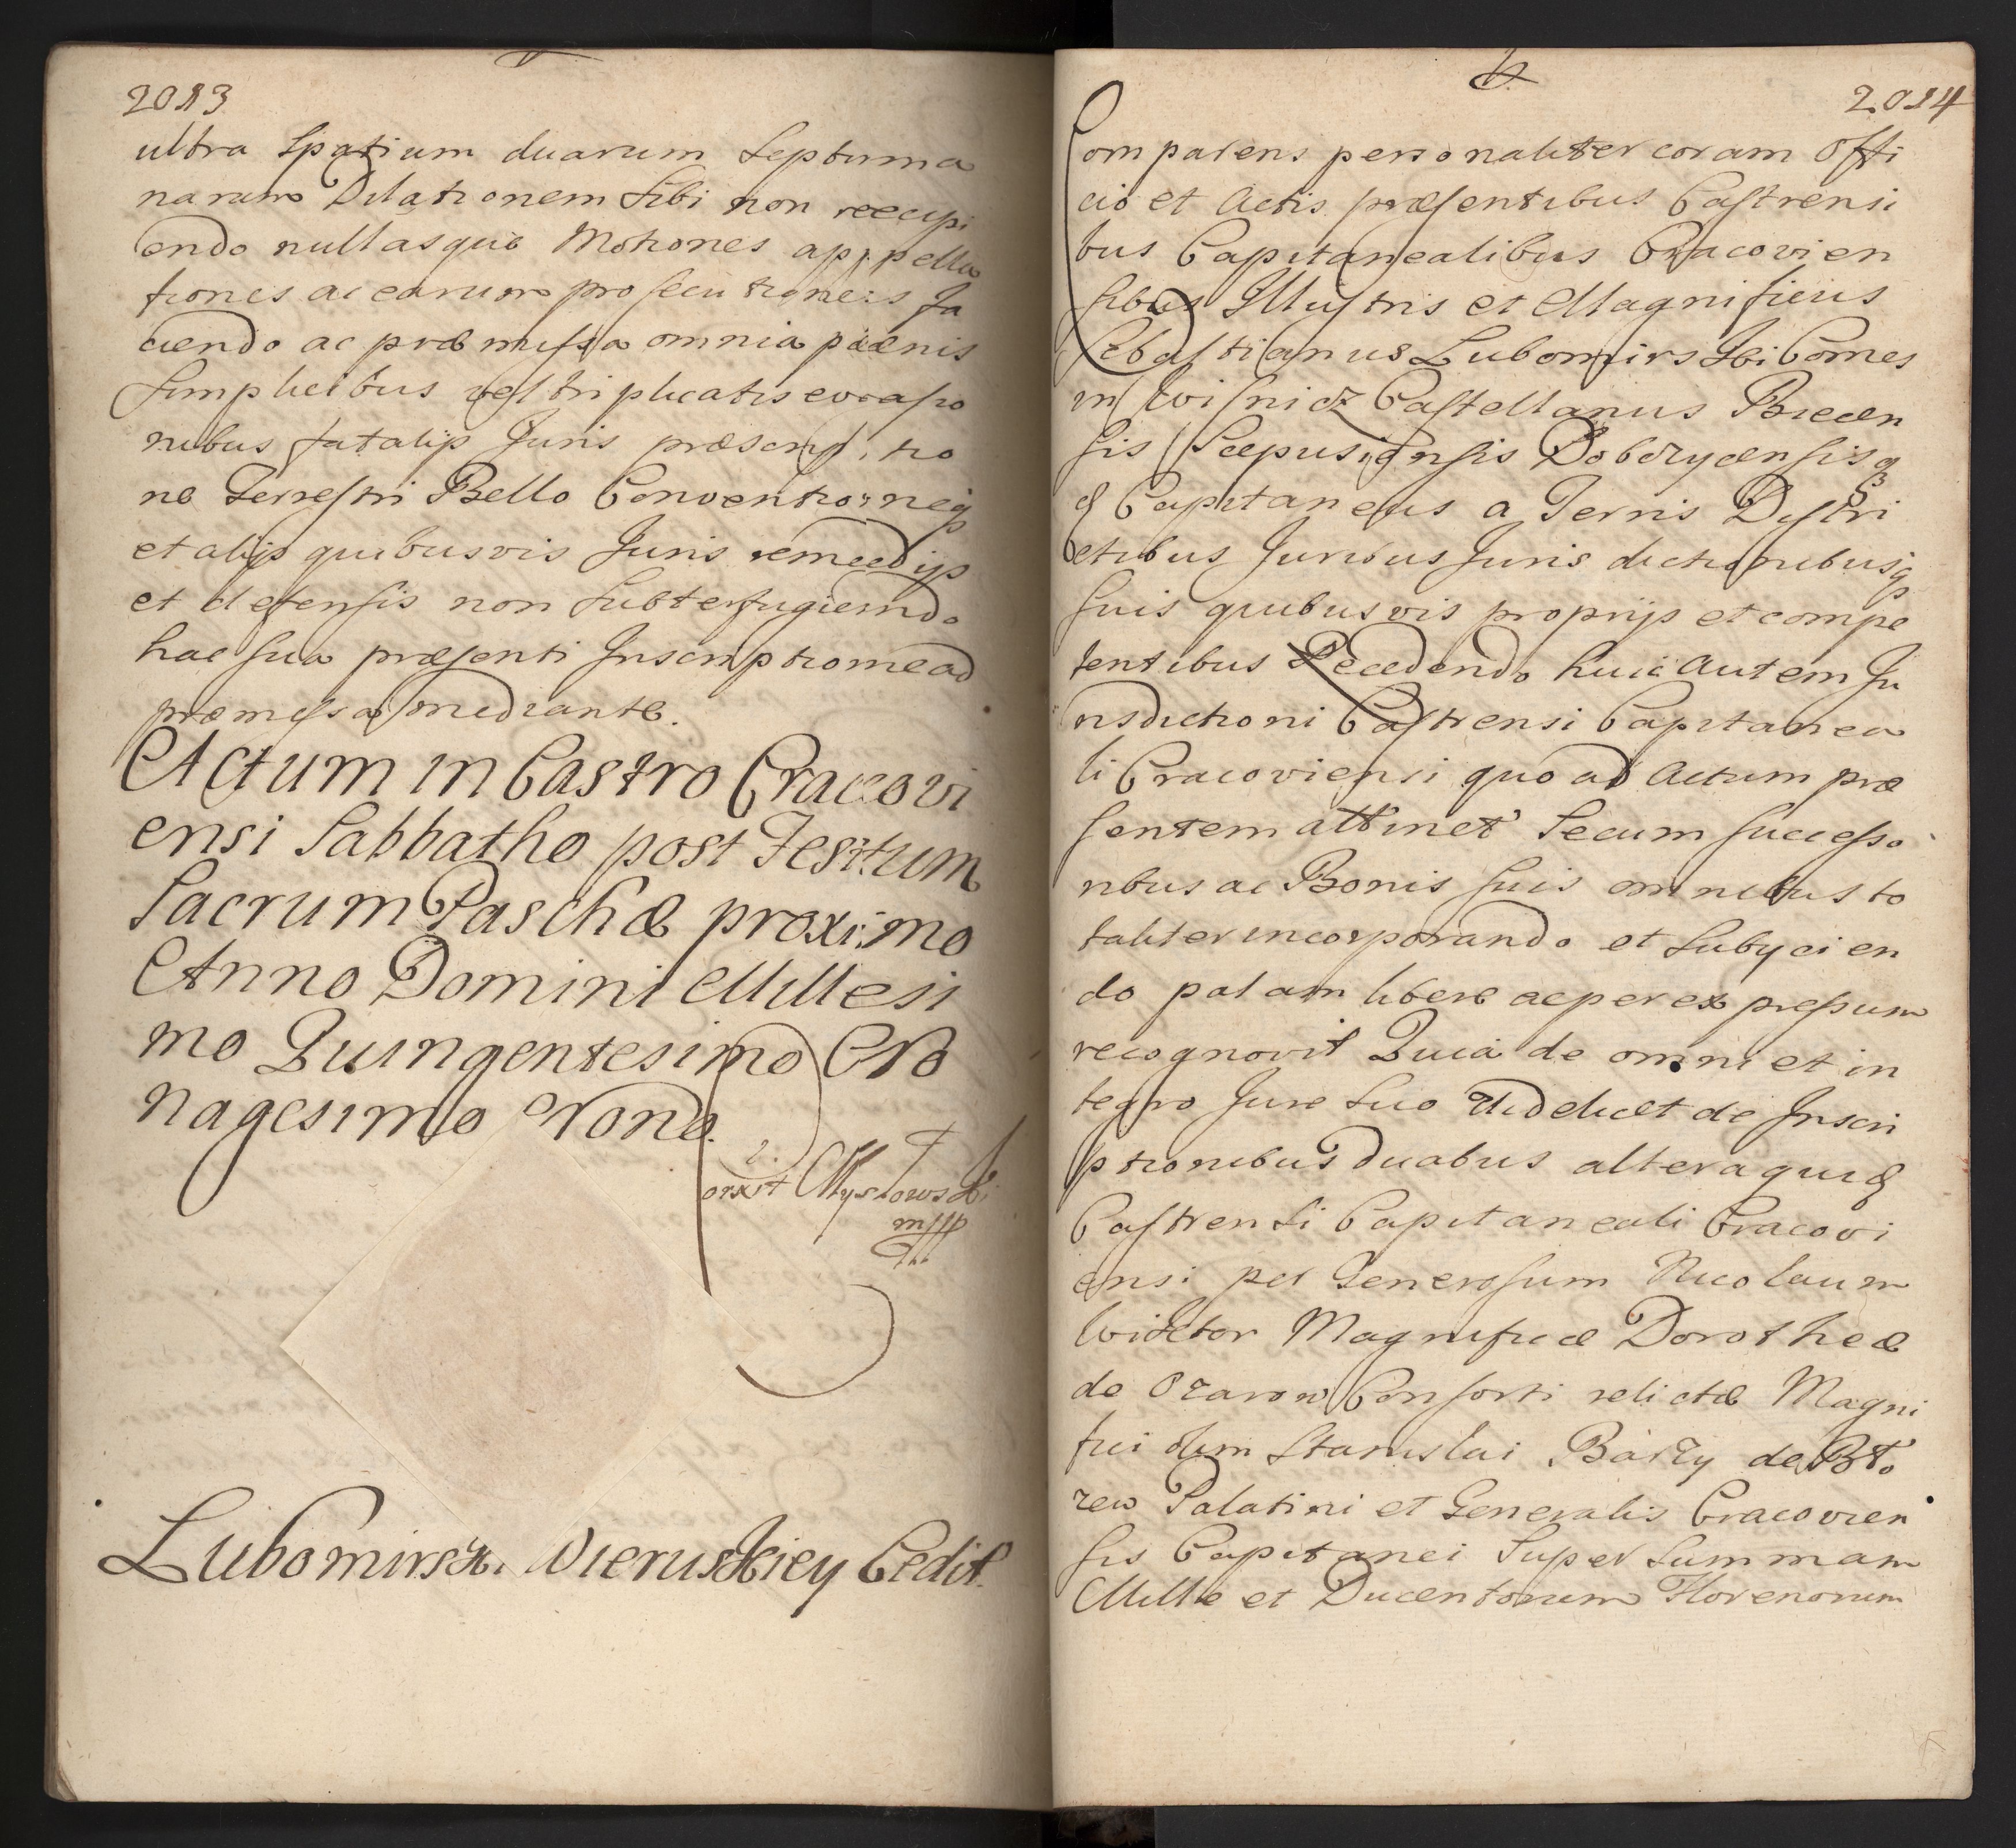 2013
ultra Spatium duarum Septima
narum Dilationem Sibi non recipi
endo nullasque Motiones appella
tiones ac earum prosecutiones fa
ciendo ac præmissa omnia pœnis
simplicibus vel triplicatis evasio
nibus fatalijs Juris præscrip tio
ne Terrestri Bello Conventioneq
et alijs quibusvis Juris remedijs
et defensis non Subterfugiendo
hac sua præsenti Inscriptione ad
præmissa mediante.
Actum in Castro Cracovi
ensi Sabbatho post Festum
Sacrum Paschæ proximo
Anno Domini Millesi
mo Quingentesimo No
nagesimo Nono.
Lubomirski Wieruskiey Cedit.
2014
Comparens personaliter coram Offi
cio et Actis præsentibus Castrensi
bus Capitanealibus Cracovien
sibus Illustris et Magnificus
Sebastianus Lubomirski Comes
in Wisnicz Castellanus Biecen
sis Scepusiensis Dobczycensisq
& Capitaneus a Terris Distri
ctibus Juribus Juris dictionibusq
suis quibusvis proprijs et compe
tentibus Recedendo huic autem Ju
risdictioni Castrensi Capitanea
li Cracoviensi quo ad Actum præ
sentem attinet Secum successo
ribus ac Bonis suis omnibus to
taliter incorporando et Subijcien
do palam libere ac per expressum
recognovit Quia de omni et in
tegro Jure Suo videlicet de Inscri
ptionibus duabus altera quid
Castrensi Capitaneali Cracovi
ensi per Generosum Nicolaum
Wiktor Magnificæ Dorotheæ
de Ozarow Consorti relictæ Magni
fici olim Stanislai Barzy de Bło
zew Palatini et Generalis Cracovien
sis Capitanei Super Summam
Mille et Ducentorum Florenorum